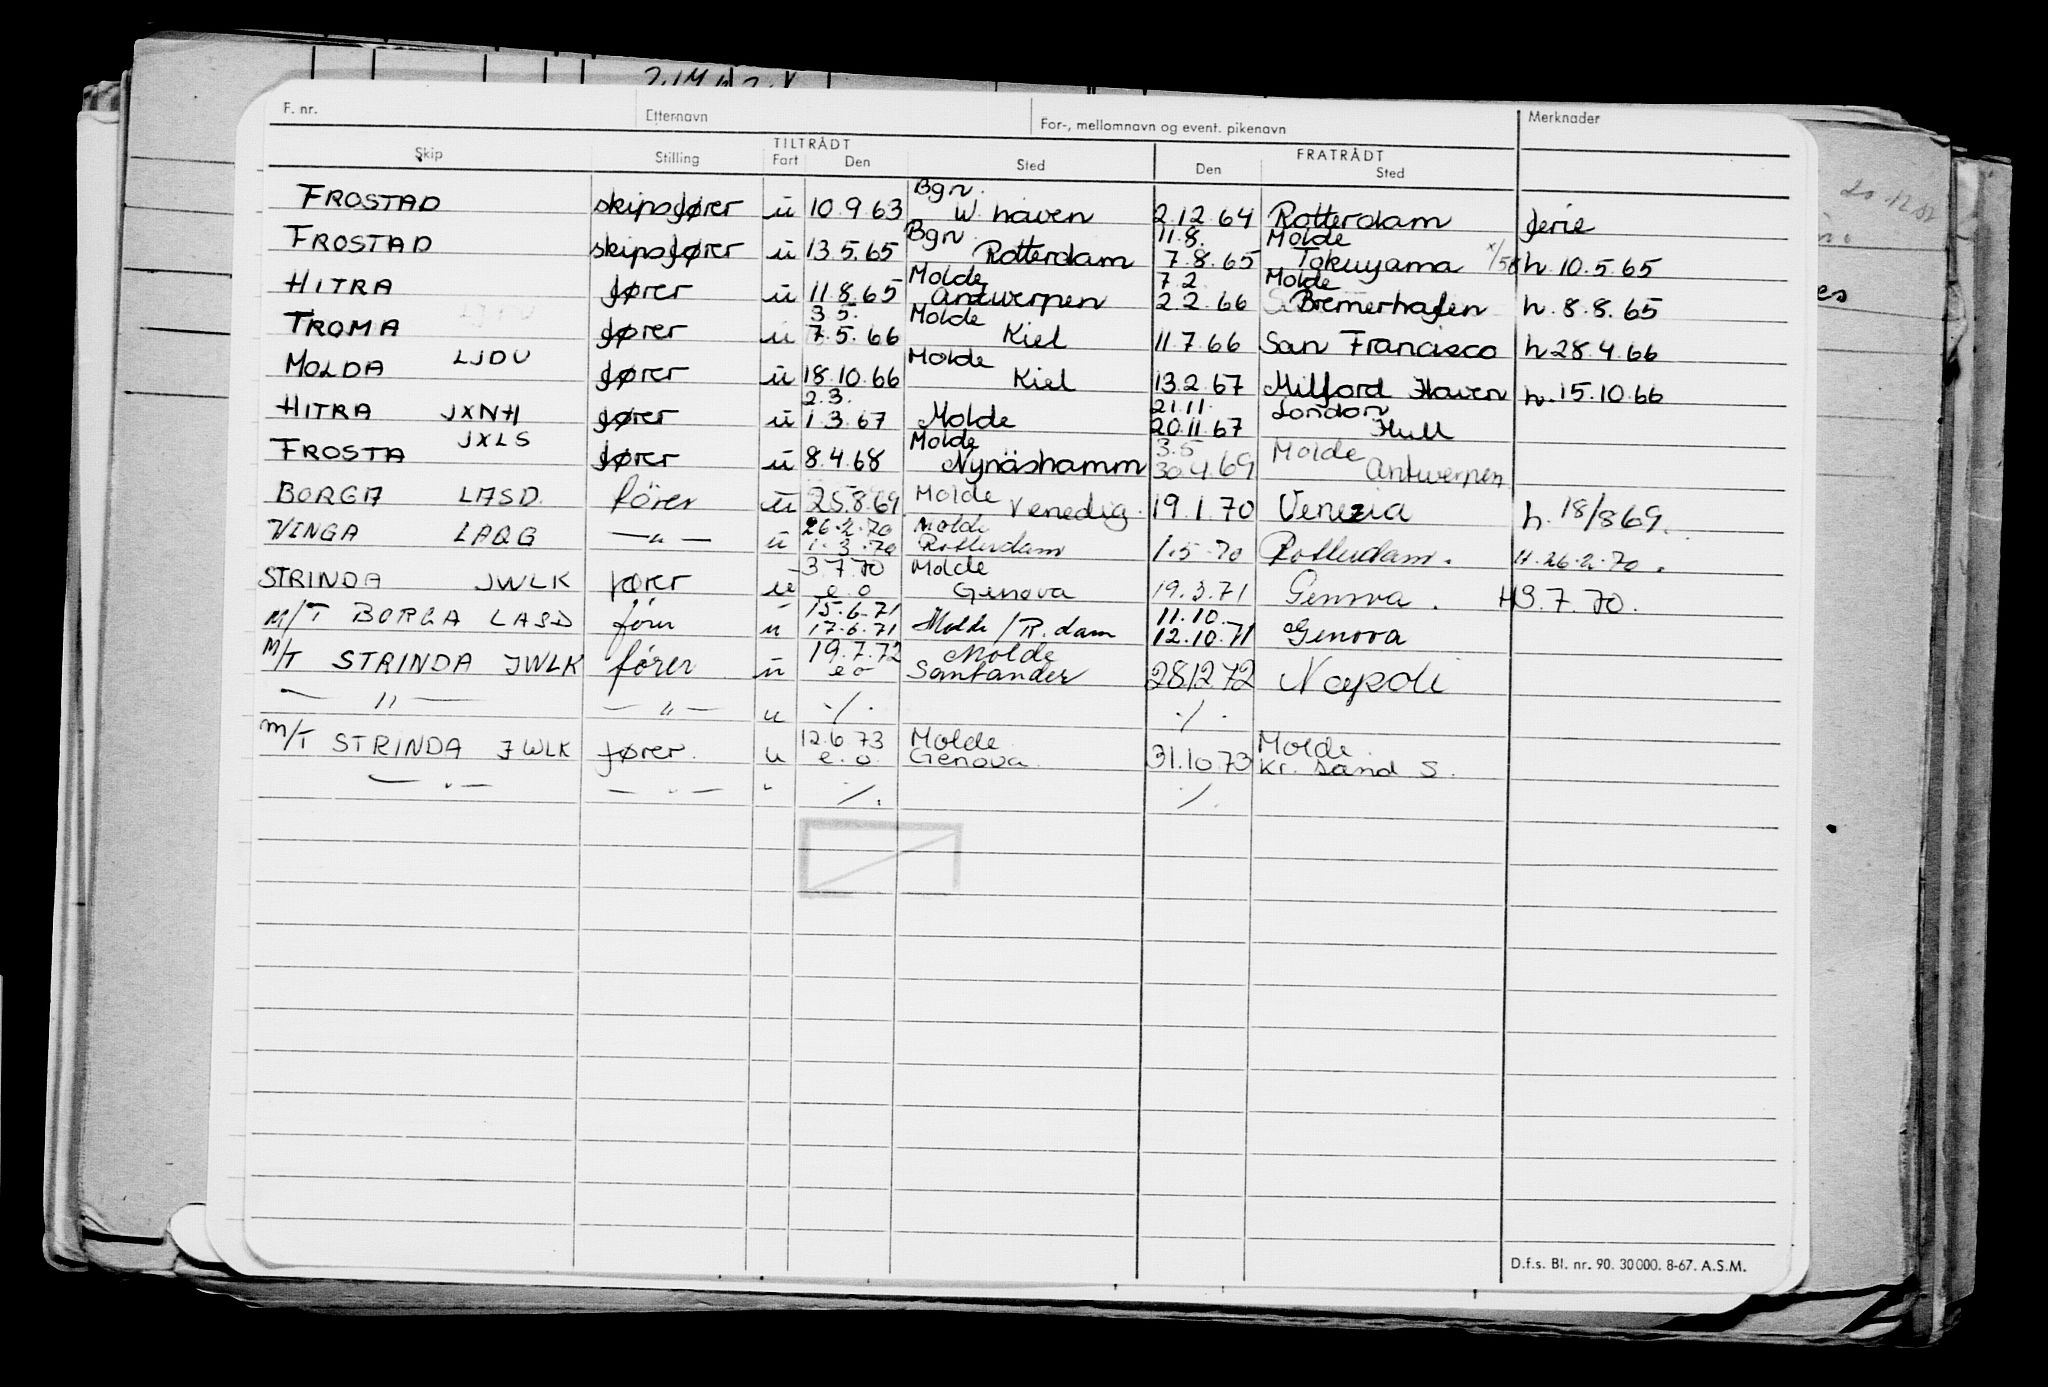 2.14
F. nr. Etternavn For-, mellomnavn og event. pikenavn Merknader
TILTRÅDT FRATRÅDT
Skip Stilling Fart Den Sted Den Sted
Bgn.
FROSTAD skipsfører u 10.9.63 W. haven 2.12.64 Rotterdam ferie
Bgn 11.8. Molde
FROSTAD skipsfører u 13.5.65 Rotterdam 7.8.65 Tokuyama h. 10.5.65
Molde 7.2 Molde
HITRA fører u 11.8.65 Antwerpen 2.2.66 Bremerhafen h. 8.8.65
3.5. Molde
TROMA fører u 7.5.66 Kiel 11.7.66 San Francisco h 28.4.66
Molde
MOLDA LJDU fører u 18.10.66 Kiel 13.2.67 Milford Haven h. 15.10.66
2.3. 21.11. London
HITRA JXNH fører u 1.3.67 Molde 20.11.67 Hull
Molde 3.5 Molde
FROSTA JXLS fører u 8.4.68 Nynäshamm 30.4.69 Antwerpen
Molde
BORGA LASD. fører u 25.8.69 Venedig. 19.1.70 Venezia h. 18/8 69.
26.2.70 Molde
VINGA LAQG — " — u 1.3.70 Rotterdam 1.5.70 Rotterdam. H. 26.2.70.
3.7.70 Molde
STRINDA JWLK fører u e.o Genova 19.3.71 Genova. H3.7.70.
15.6.71 11.10.
M/T BORGA LASD fører u 17.6.71 Molde / R.dam 12.10.71 Genova
19.7.72 Molde
M/T STRINDA JWLK fører u e o Santander 28.12.72 Napoli
— " — — " — u ./. ./.
12.6.73 Molde Molde.
M/T STRINDA JWLK fører. u e.o. Genova. 31.10.73 Kr. sand S.
— " — — " — " ./. ./.
D.f.s. Bl. nr. 90. 30000. 8-67. A.S.M.